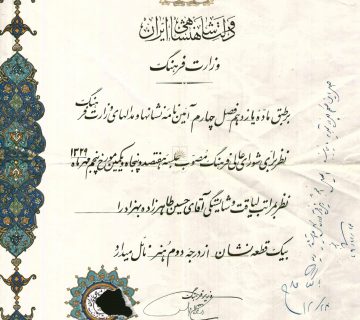 دولت شاهنشاهی ایران
وزارت فرهنگ
برطبق مادهٔ یازدهم فصل چهارم آیین نامهٔ نشانها و مدالهای وزارت فرهنگ
نظر برأی شورای عالی فرهنگ مصوب جلسهٔ هفتصد و پنجاه و یکمین مورخ پنجم مهرماه ۱۳۲۹
نظر بمراتب لیاقت و شایستگی آقای حسین طاهرزاده بهزاد را
بیک قطعه نشان از درجه دوم هنر نائل میدارد
وزیر فرهنگ